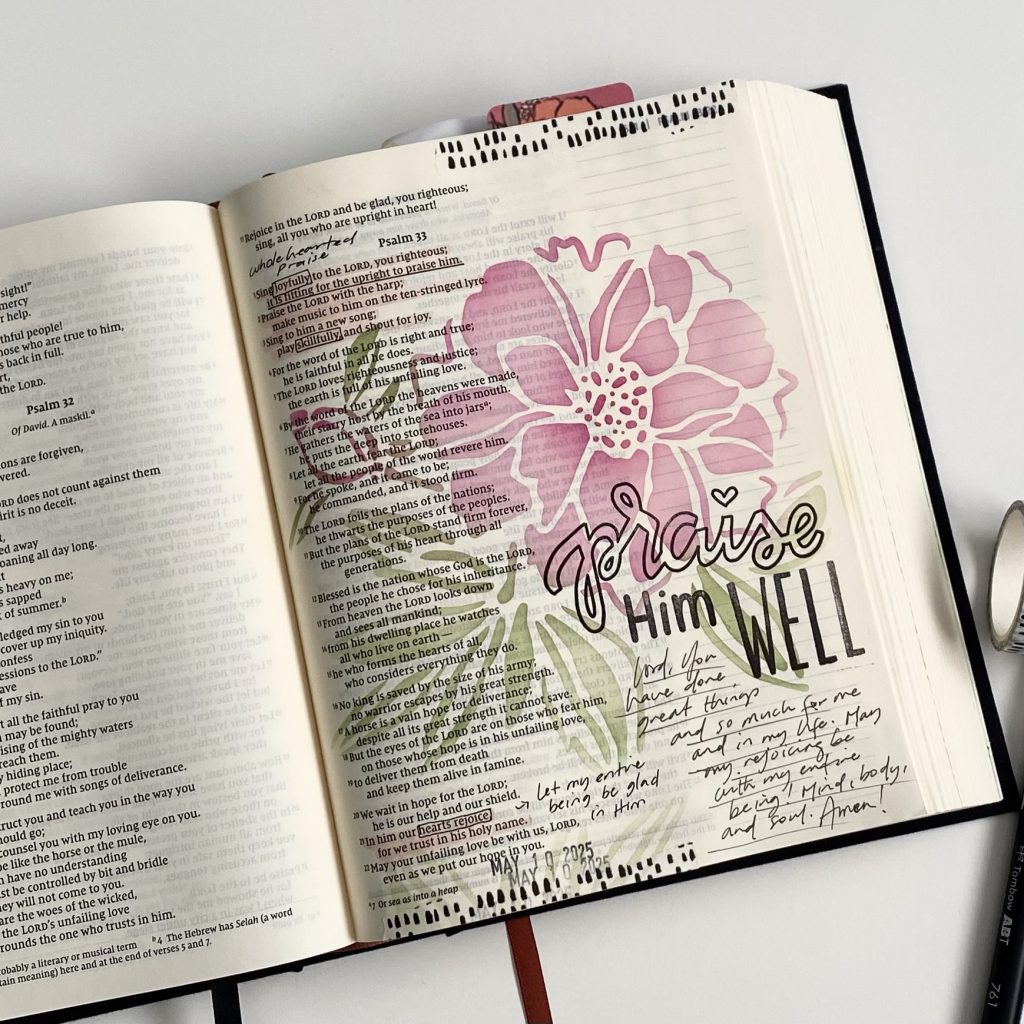 sight!"
mercy
r help.
thful people!
hose who are true to him,
s back in full.
rt,
the LORD.
Psalm 32
Of David. A maskil.a
ons are forgiven,
vered.
ORD does not count against them
irit is no deceit.
t,
ed away
oaning all day long.
t
s heavy on me;
s sapped
t of summer.b
ledged my sin to you
cover up my iniquity.
onfess
essions to the LORD."
ave
f my sin.
t all the faithful pray to you
may be found;
ising of the mighty waters
reach them.
y hiding place;
protect me from trouble
round me with songs of deliverance.
truct you and teach you in the way you
ould go;
ounsel you with my loving eye on you.
be like the horse or the mule,
h have no understanding
ust be controlled by bit and bridle
hey will not come to you.
are the woes of the wicked,
the LORD's unfailing love
rrounds the one who trusts in him.
robably a literary or musical term b4 The Hebrew has Selah (a word
tain meaning) here and at the end of verses 5 and 7.
11Rejoice in the LORD and be glad, you righteous;
sing, all you who are upright in heart!
Psalm 33
wholehearted
praise
1Sing joyfully to the LORD, you righteous;
it is fitting for the upright to praise him.
2Praise the LORD with the harp;
make music to him on the ten-stringed lyre.
3Sing to him a new song;
play skillfully, and shout for joy.
4For the word of the LORD is right and true;
he is faithful in all he does.
5The LORD loves righteousness and justice;
the earth is full of his unfailing love.
6By the word of the LORD the heavens were made,
their starry host by the breath of his mouth.
7He gathers the waters of the sea into jarsa;
he puts the deep into storehouses.
8Let all the earth fear the LORD;
let all the people of the world revere him.
9For he spoke, and it came to be;
he commanded, and it stood firm.
10The LORD foils the plans of the nations;
he thwarts the purposes of the peoples.
11But the plans of the LORD stand firm forever,
the purposes of his heart through all
generations.
12Blessed is the nation whose God is the LORD,
the people he chose for his inheritance.
13From heaven the LORD looks down
and sees all mankind;
14from his dwelling place he watches
all who live on earth—
15he who forms the hearts of all,
who considers everything they do.
16No king is saved by the size of his army;
no warrior escapes by his great strength.
17A horse is a vain hope for deliverance;
despite all its great strength it cannot save.
18But the eyes of the LORD are on those who fear him,
on those whose hope is in his unfailing love,
19to deliver them from death
and keep them alive in famine.
20We wait in hope for the LORD;
he is our help and our shield.
21In him our hearts rejoice,
for we trust in his holy name.
22May your unfailing love be with us, LORD,
even as we put our hope in you.
a7 Or sea as into a heap
praise
Him WELL
Lord, You
have done
great things
and so much for me
and in my life. May
my rejoicing be
with my entire
being! Mind, body,
and soul. Amen!
→ Let my entire
being be glad
in Him
MAY 10 2025
MAY 10 2025
Tombow ABT
761